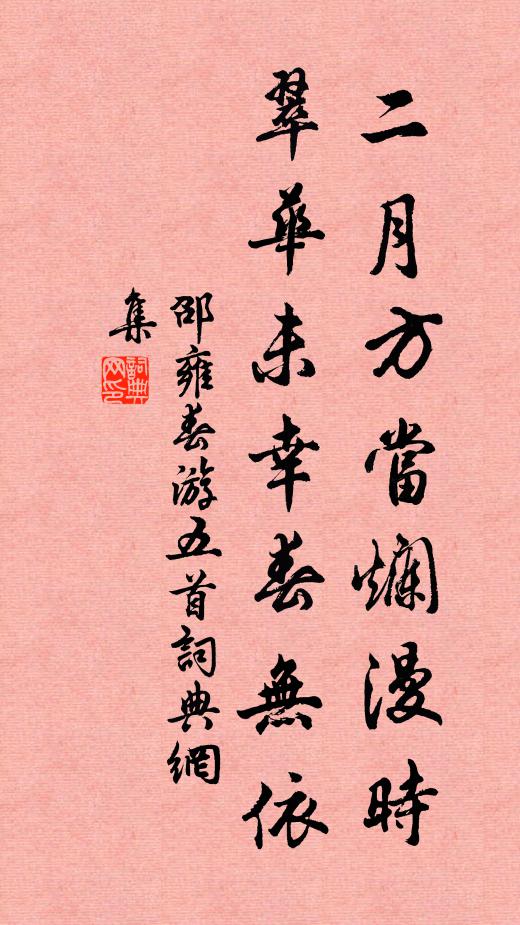 二月方當爛漫時
翠華未幸春無依
邵雍春游五首詞典網
集
詞典
网印